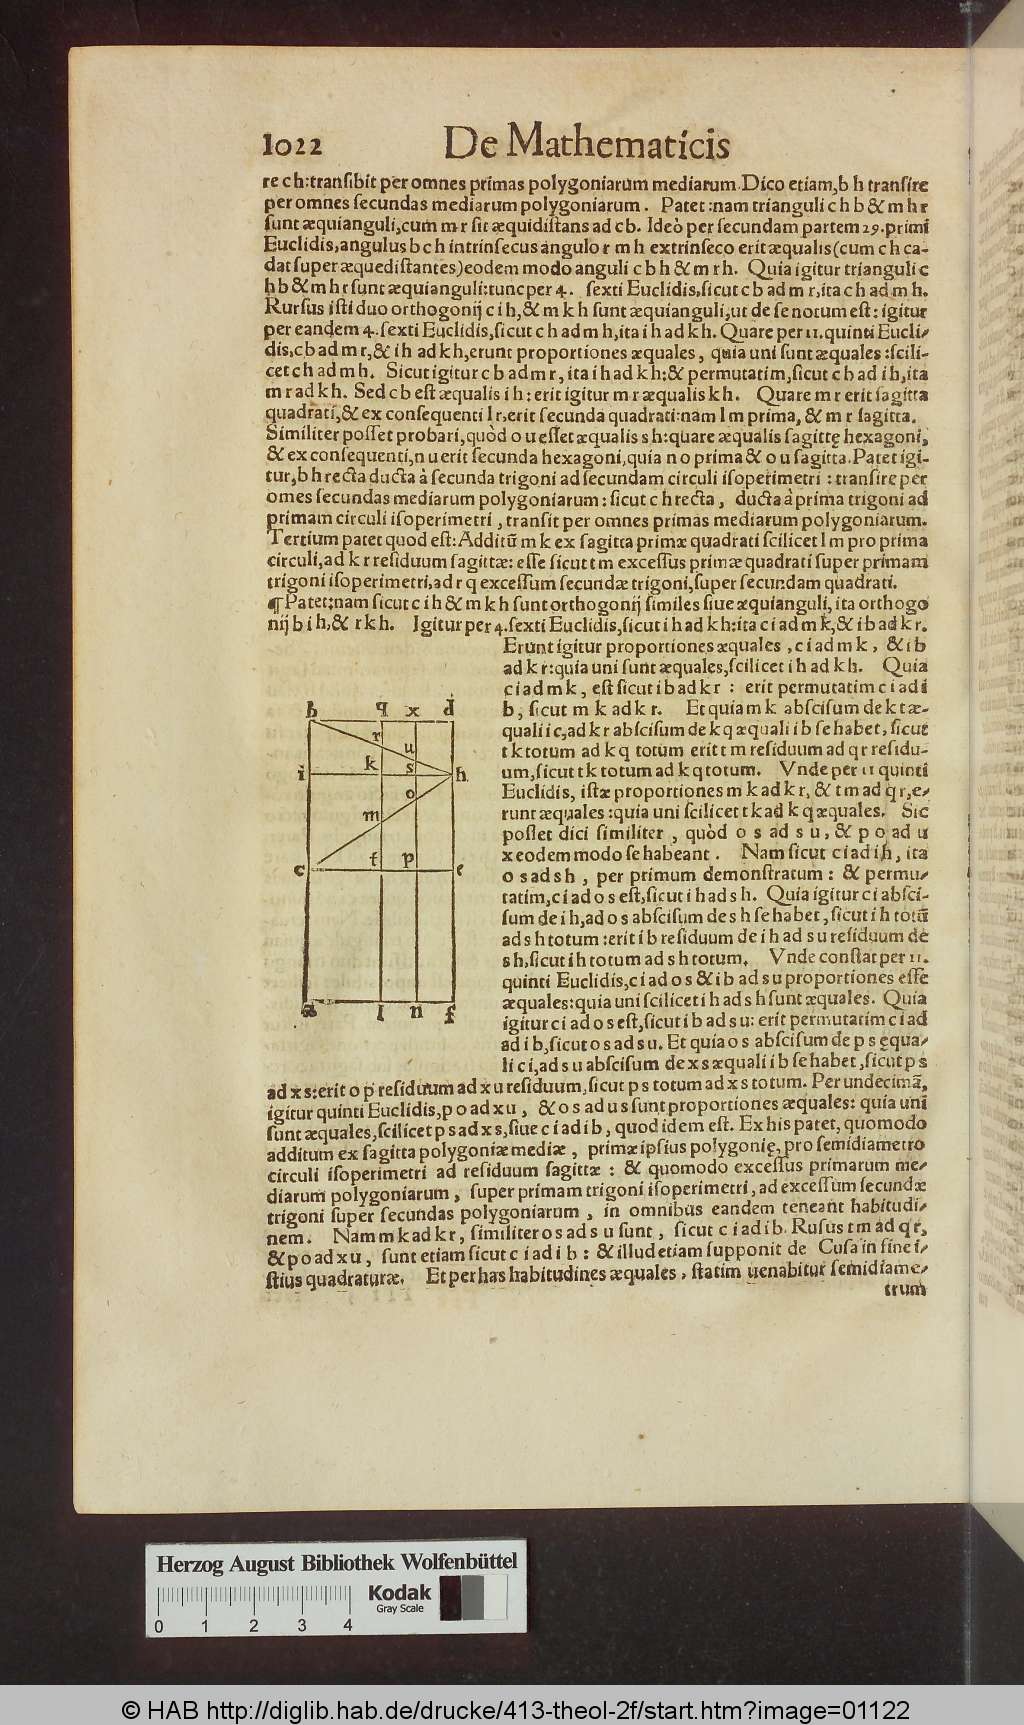 1022 De Mathematicis
re c h: transibit per omnes primas polygoniarum mediarum. Dico etiam, b h transire
per omnes secundas mediarum polygoniarum. Patet: nam trianguli c h b & m h r
sunt æquianguli, cum m r sit æquidistans ad c b. Ideò per secundam partem 29. primi
Euclidis, angulus b c h intrinsecus angulo r m h extrinseco erit æqualis (cum c h ca-
dat super æquedistantes) eodem modo anguli c b h & m r h. Quia igitur trianguli c
h b & m h r sunt æquianguli: tunc per 4. sexti Euclidis, sicut c b ad m r, ita c h ad m h.
Rursus isti duo orthogonij c i h, & m k h sunt æquianguli, ut de se notum est: igitur
per eandem 4. sexti Euclidis, sicut c h ad m h, ita i h ad k h. Quare per 11. quinti Eucli-
dis, c b ad m r, & i h ad k h, erunt proportiones æquales, quia uni sunt æquales: scili-
cet c h ad m h. Sicut igitur c b ad m r, ita i h ad k h: & permutatim, sicut c b ad i h, ita
m r ad k h. Sed c b est æqualis i h: erit igitur m r æqualis k h. Quare m r erit sagitta
quadrati, & ex consequenti l r, erit secunda quadrati: nam l m prima, & m r sagitta.
Similiter posset probari, quòd o u esset æqualis s h: quare æqualis sagittę hexagoni,
& ex consequenti, n u erit secunda hexagoni, quia n o prima & o u sagitta. Patet igi-
tur, b h recta ducta à secunda trigoni ad secundam circuli isoperimetri: transire per
omes secundas mediarum polygoniarum: sicut c h recta, ducta à prima trigoni ad
primam circuli isoperimetri, transit per omnes primas mediarum polygoniarum.
Tertium patet quod est: Additũ m k ex sagitta primæ quadrati scilicet l m pro prima
circuli, ad k r residuum sagittæ: esse sicut t m excessus primæ quadrati super primam
trigoni isoperimetri, ad r q excessum secundæ trigoni, super secundam quadrati.
¶ Patet: nam sicut c i h & m k h sunt orthogonij similes siue æquianguli, ita orthogo
nij b i h, & r k h. Igitur per 4. sexti Euclidis, sicut i h ad k h: ita c i ad m k, & i b ad k r.
Erunt igitur proportiones æquales, c i ad m k, & i b
ad k r: quia uni sunt æquales, scilicet i h ad k h. Quia
c i ad m k, est sicut i b ad k r: erit permutatim c i ad i
b, sicut m k ad k r. Et quia m k abscisum de k t æ-
quali i c, ad k r abscisum de k q æquali i b se habet, sicut
t k totum ad k q totum erit t m residuum ad q r residu-
um, sicut t k totum ad k q totum. Vnde per 11 quinti
Euclidis, istæ proportiones m k ad k r, & t m ad q r, e-
runt æquales: quia uni scilicet t k ad k q æquales. Sic
posset dici similiter, quòd o s ad s u, & p o ad u
x eodem modo se habeant. Nam sicut c i ad i h, ita
o s ad s h, per primum demonstratum: & permu-
tatim, c i ad o s est, sicut i h ad s h. Quia igitur c i absci-
sum de i h, ad o s abscisum de s h se habet, sicut i h totũ
ad s h totum: erit i b residuum de i h ad s u residuum de
s h, sicut i h totum ad s h totum. Vnde constat per 11.
quinti Euclidis, c i ad o s & i b ad s u proportiones esse
æquales: quia uni scilicet i h ad s h sunt æquales. Quia
igitur c i ad o s est, sicut i b ad s u: erit permutatim c i ad
ad i b, sicut o s ad s u. Et quia o s abscisum de p s ęqua-
li c i, ad s u abscisum de x s æquali i b se habet, sicut p s
ad x s: erit o p residuum ad x u residuum, sicut p s totum ad x s totum. Per undecimã,
igitur quinti Euclidis, p o ad x u, & o s ad u s sunt proportiones æquales: quia uni
sunt æquales, scilicet p s ad x s, siue c i ad i b, quod idem est. Ex his patet, quomodo
additum ex sagitta polygoniæ mediæ, primæ ipsius polygonię, pro semidiametro
circuli isoperimetri ad residuum sagittæ: & quomodo excessus primarum me-
diarum polygoniarum, super primam trigoni isoperimetri, ad excessum secundæ
trigoni super secundas polygoniarum, in omnibus eandem teneant habitudi-
nem. Nam m k ad k r, similiter o s ad s u sunt, sicut c i ad i b. Rusus t m ad q r,
& p o ad x u, sunt etiam sicut c i ad i b: & illud etiam supponit de Cusa in fine i-
stius quadraturæ. Et per has habitudines æquales, statim uenabitur semidiame-
trum
b q x d
r
u
i k s h
o
m
c t p e
a l n f
Herzog August Bibliothek Wolfenbüttel
Kodak
Gray Scale
0 1 2 3 4
© HAB http://diglib.hab.de/drucke/413-theol-2f/start.htm?image=01122